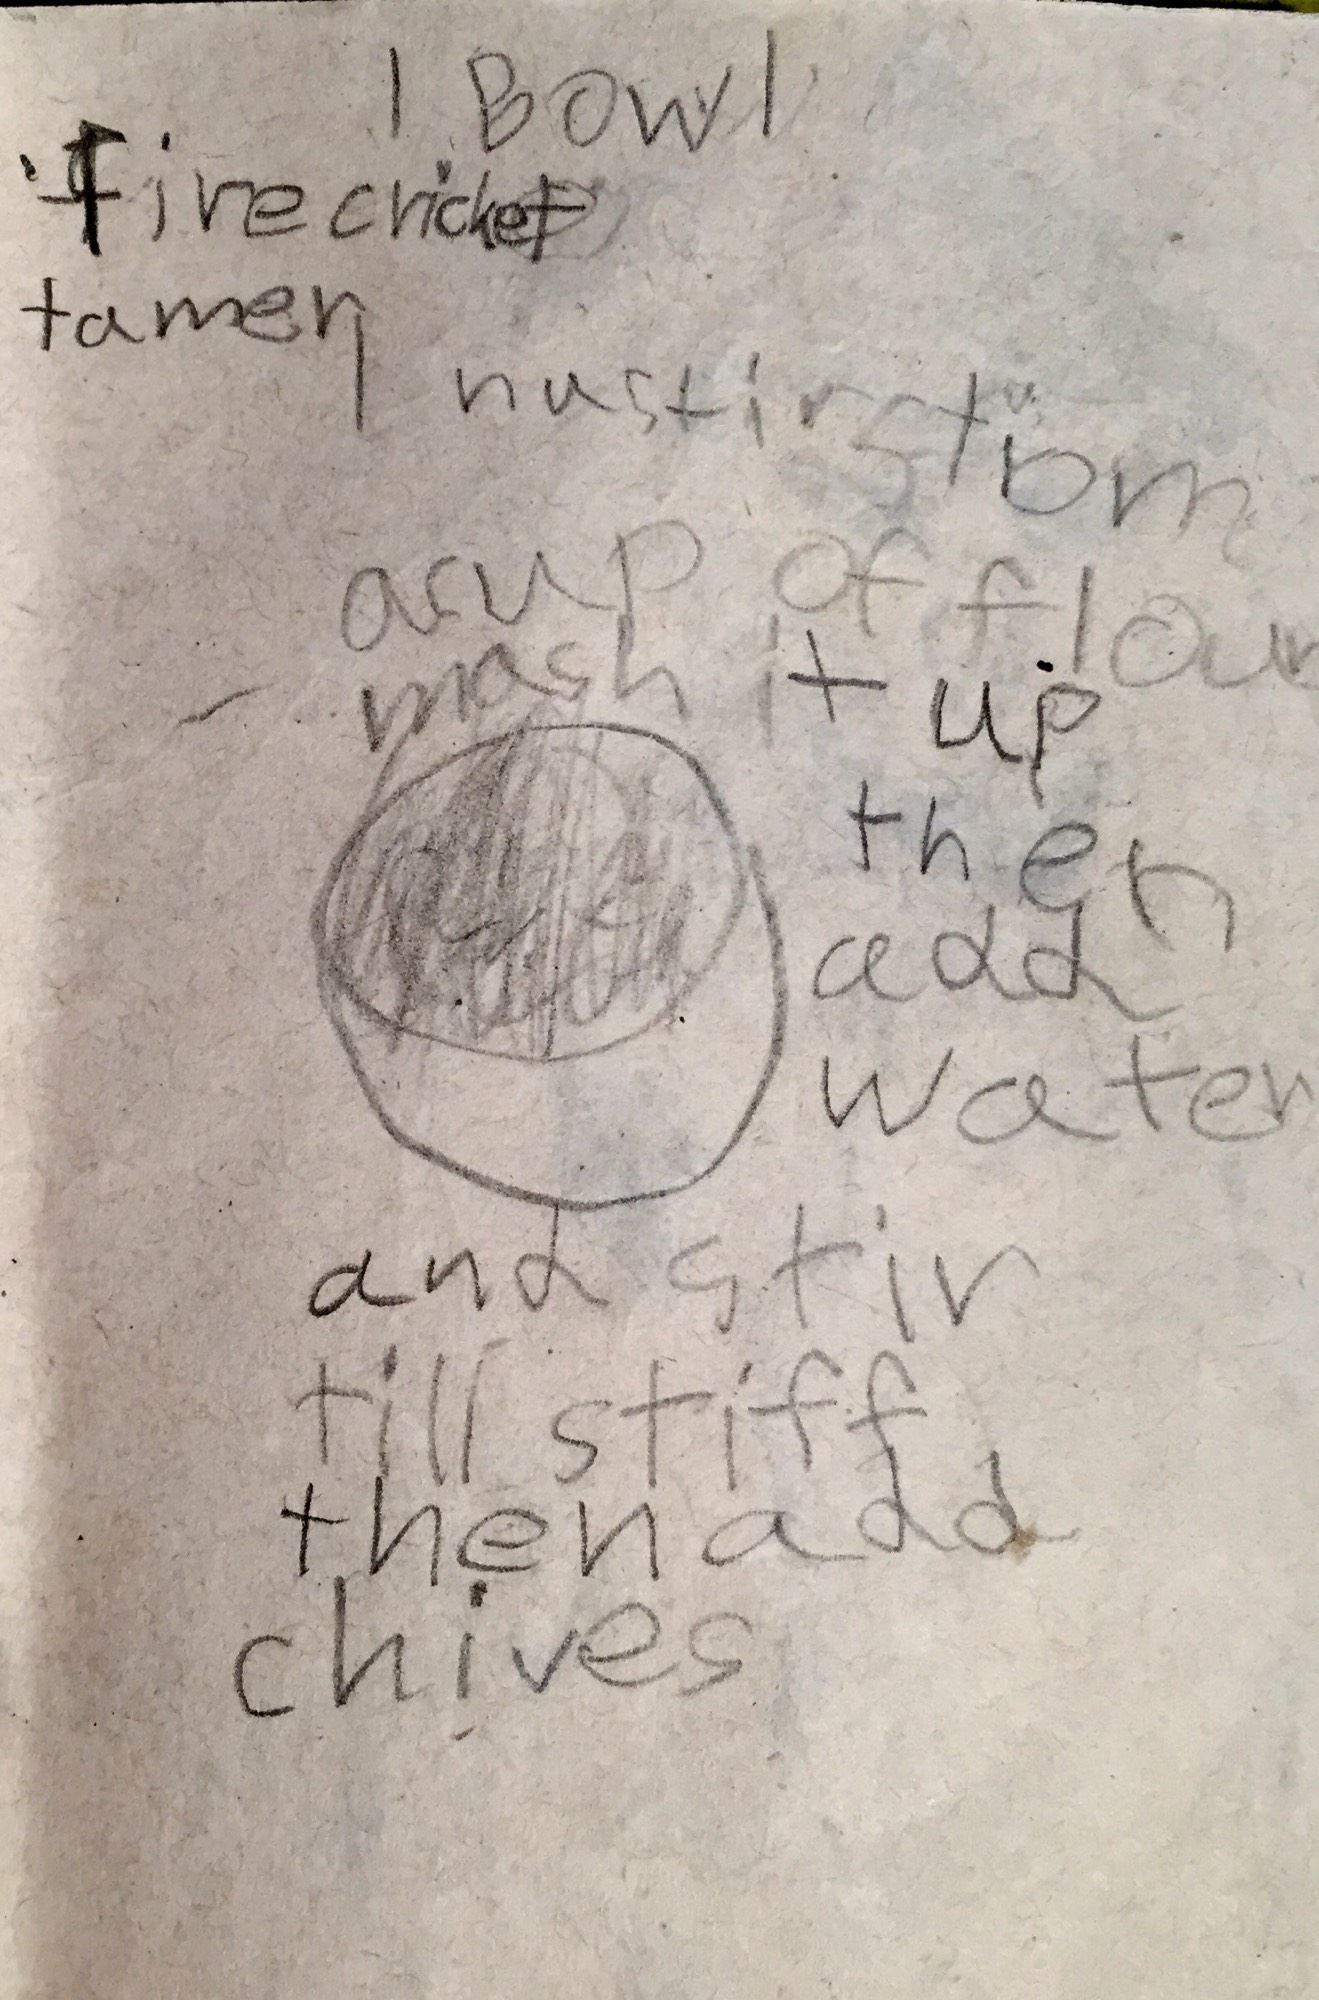 1 Bowl
firecricket
tamer
1 nustirstom
acup of flour
mash it up
then
add
water
and stir
till stiff
then add
chives